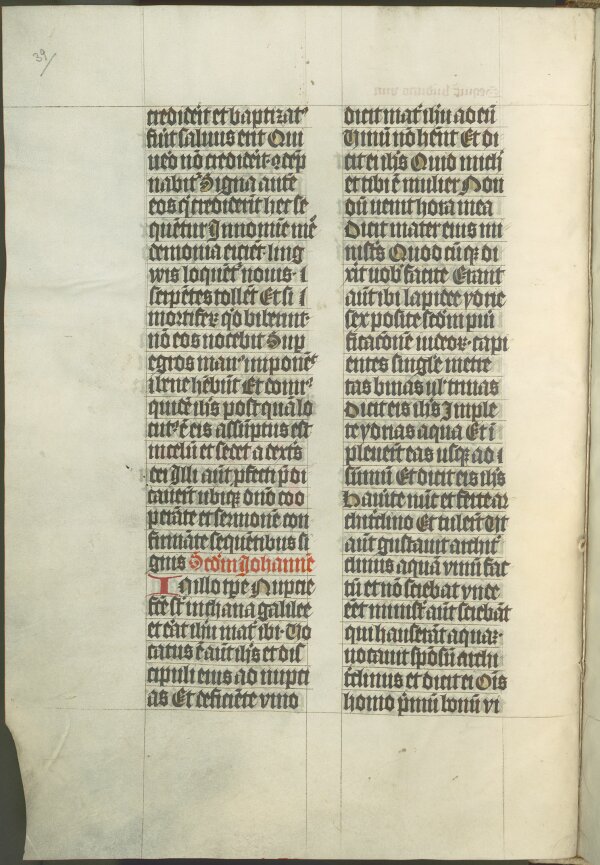 39
crediderit et baptizat᷒
fūit saluus erit Qui
uero nō crediderit ꝯdēp
nabit᷒ Signa autē
eos q̄ crediderint hec se
quētur In nomine meo
demonia eiciēt ling
wis loquēt᷒ nouis · I
serpētes tollēt Et si
mortifer᷒ qͦd biberint
nō eos nocebit Sup
egros man᷒ imponēt
⁊ bene hēbūt Et
quidē ihs post quā lo
cut᷒ ē eis assūptus est
in celū et sedet a dextꝭ
dei Illi aūt pfecti p̄di
cauerūt ubiqꝫ dn̄o coo
perāte et sermonē con
firmāte sequētibus si
gnis Scd̄m Johannē
In illo tp̄e Nuptie
fc̄e sūt in chana galilee
et erāt ihu mat᷒ ibi · Vo
catus ē aūt ihs et dis
cipuli eius ad nupti
as Et deficiēte vino
dicit mat᷒ ihu ad eū
Vinū nō hn̄t Et di
cit ei ihs Quid michi
et tibi ē mulier Non
dū uenit hora mea
Dicit mater eius mi
nistꝭ Quod cūqꝫ di
xit uob᷒ facite Erant
aūt ibi lapidee ydrie
sex posite scd̄m puri
ficacōnē iudeoꝝ · capi
entes singule metre
tas binas ul᷒ trinas
Dicit eis ihs Imple
te ydrias aqua Et ī
pleuerūt eas usqꝫ ad
sūmū Et dicit eis ihs
Haurite nūc et ferte ar
chitclino Et tulerūt Vt
aūt gustauit archit᷒
clinus aquā vinū fac
tū et nō sciebat vnde
eēt ministꝭ aūt sciebāt
qui hauserāt aquaꝫ ·
uocauit spōsū archi
tc̄linus et dicit ei Ois
homo p̄mū bonū vi